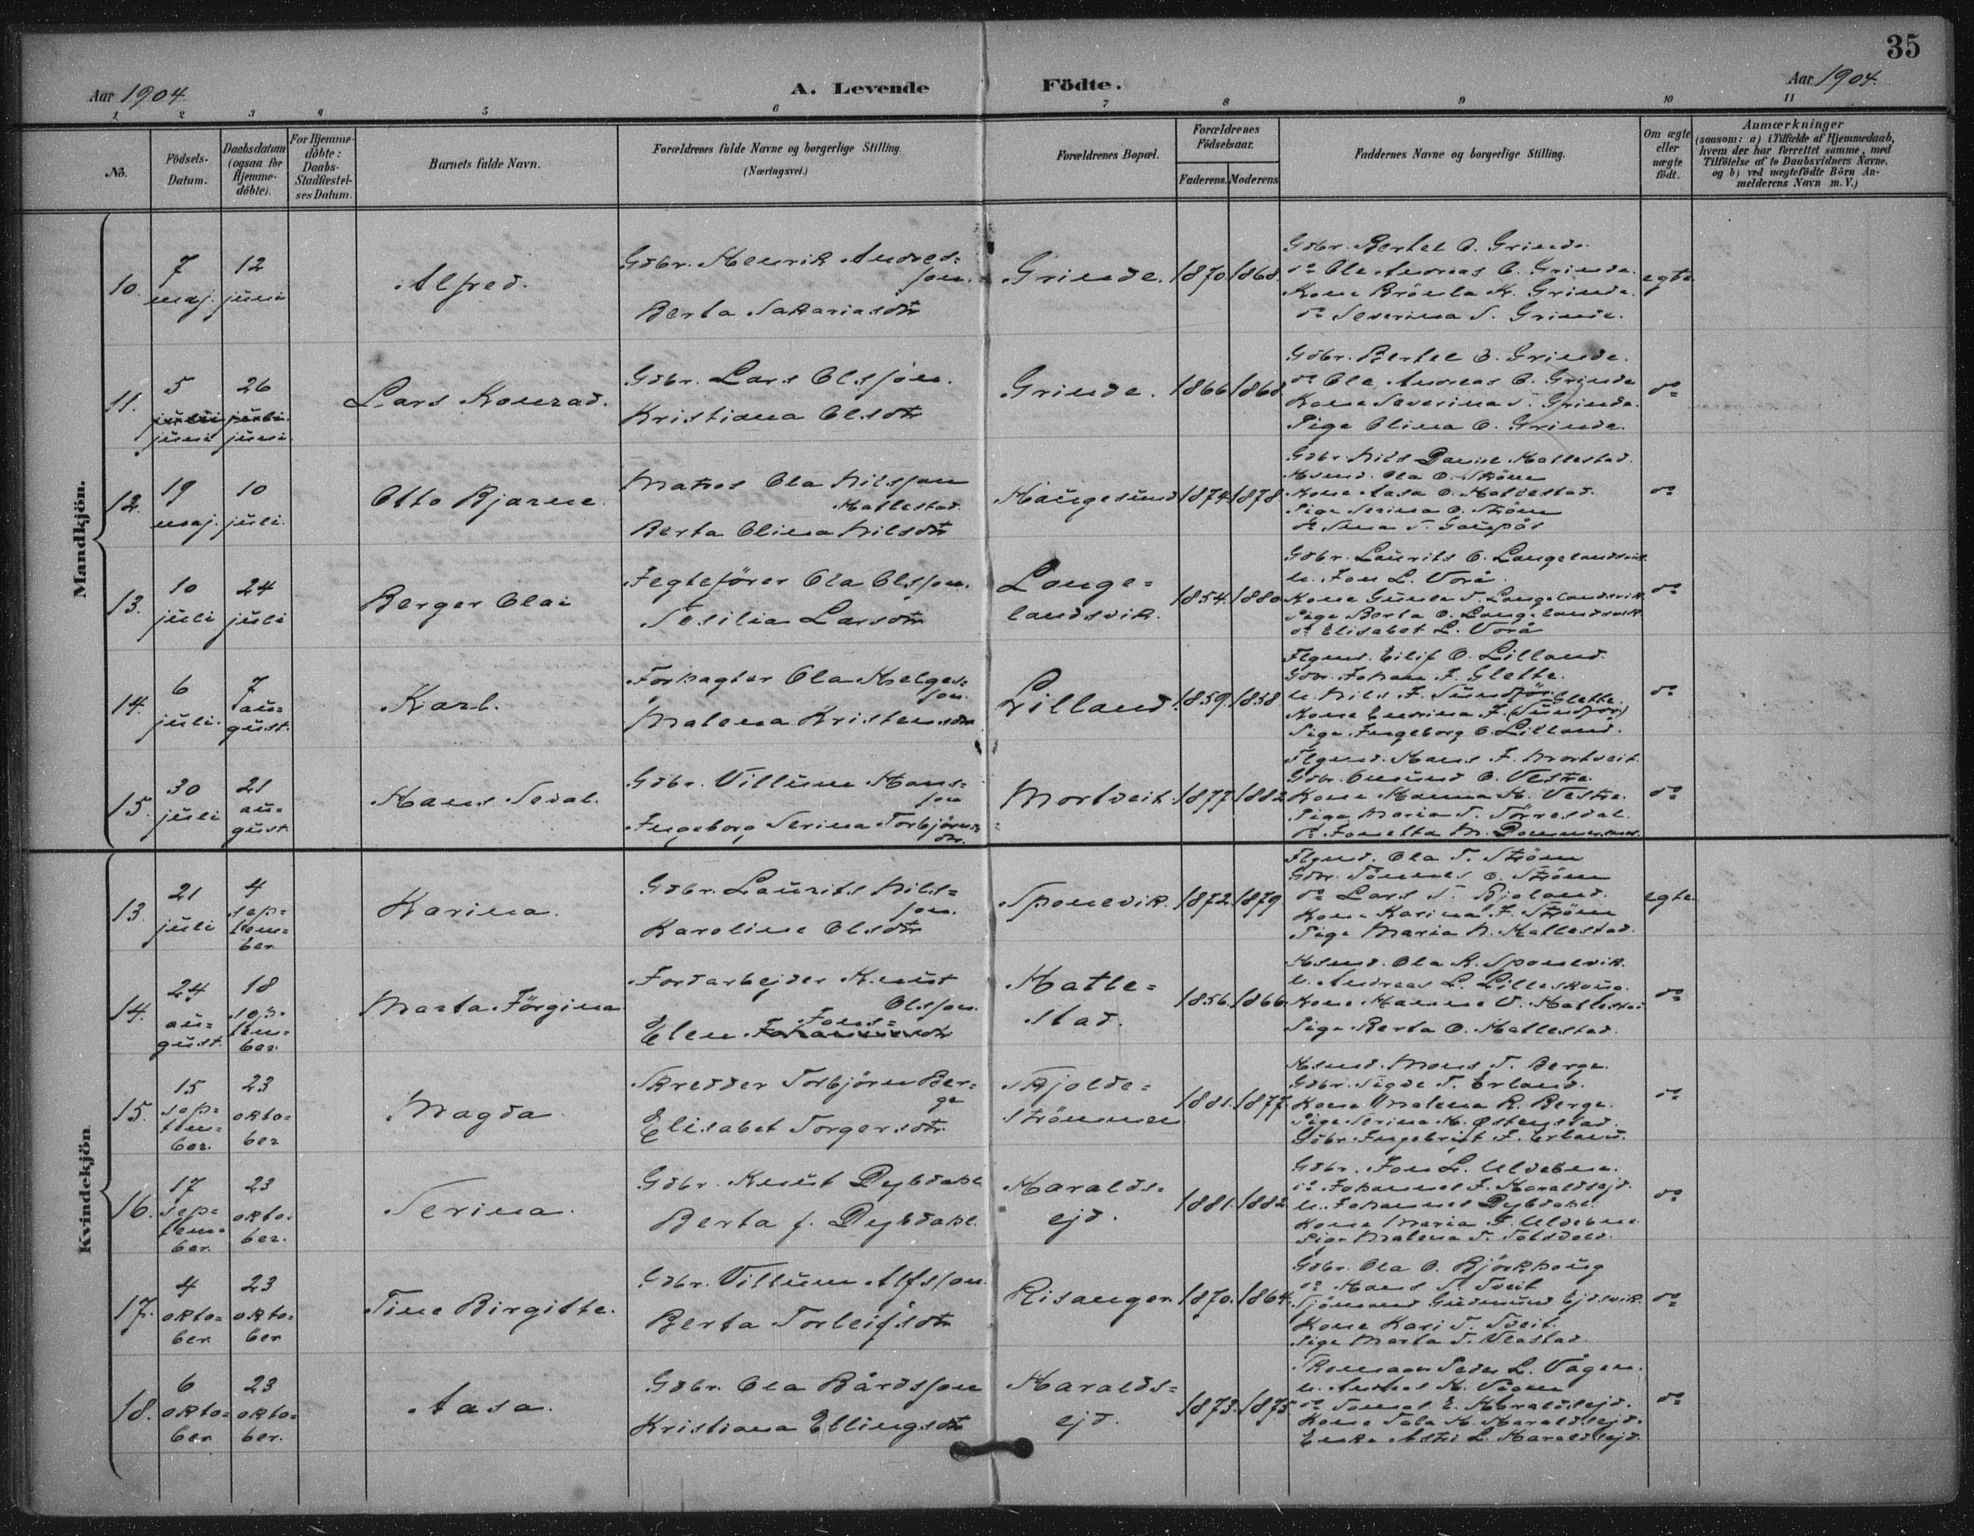 35
Aar 1904
A. Levende Födte.
Aar 1904
1 2 3 4 5 6 7 8 9 10 11
No.
Födsels-Datum.
Daabsdatum (ogsaa for Hjemme-döbte).
For Hjemme-döbte: Daabs-Stadfæstel-ses Datum.
Barnets fulde Navn.
Forældrenes fulde Navne og borgerlige Stilling. (Næringsvei.)
Forældrenes Bopæl.
Forældrenes Födselsaar.
Faderens. Moderens.
Faddernes Navne og borgerlige Stilling.
Om ægte eller uægte födt.
Anmærkninger
(saasom: a) i Tilfælde af Hjemmedaab,
hvem der har forrettet samme, med
Tilföielse af to Daabsvidners Navne,
og b) ved uægtefödte Börn An-
melderens Navn m. V.)
Mandkjön.
10. 7 maj. 12 juni Alfred.
Gdbr. Henrik Andres=
son.
Berta Sakariasdtr
Grinde. 1870. 1868.
Gdbr. Bertel O. Grinde.
do Ola Andreas O. Grinde.
Kone Brönla K. Grinde.
do Severina S. Grinde.
egte
11. 5 juni 26 juni. Lars Konrad.
Gdbr. Lars Olsson.
Kristiana Olsdtr
Grinde. 1866. 1868
Gdbr. Bertel O. Grinde.
do Ola Andreas O. Grinde
Kone Severina S. Grinde.
Pige Olina O. Grinde.
do
12. 19 maj. 10 juli. Otto Bjarne.
Matros Ola Nilsson
Hatlestad.
Berta Olina Nilsdtr
Haugesund 1874. 1878.
Gdbr. Nils Daniel Hatlestad.
Hsmd. Ola O. Ström
Kone Aasa O. Hatlestad.
Pige Serina O. Ström
do
13. 10 juli 24 juli Berger Olai
Jegtefører Ola Olsson.
Sesilia Larsdtr
Lange=
landsvik.
1854. 1880.
Gdbr. Laurits O. Langelandsvik
u. Jon L. Vorå.
Kone Gunla T. Langelandsvik
Pige Berta O. Langelandsvik
do Elisabet L. Vorå
do
14. 6 juli. 7 au=
gust. Karl.
Forpagter Ola Helges=
son.
Malena Kristensdtr
Lilland 1859. 1858
Flgmd. Eilif O. Lilland.
Gdbr. Johan J. Glette.
u. Nils J. Sundför
Pige Ingeborg O. Lilland.
do
15. 30 juli 21 au=
gust. Hans Sedal.
Gdbr. Villum Hans=
son
Ingeborg Serina Torbjörns=
dtr.
Mortveit. 1877. 1882.
Flgmd. Hans J. Mortveit.
Gdbr. Omund O. Vestre.
Kone Hanna H. Vestre.
Pige Maria T. Törresdal.
do
Kvindekjön
13. 21 juli 4 sep=
tem=
ber Karina.
Gdbr. Laurits Nils=
son.
Karoline Olsdtr
Sponevik. 1872. 1879
Flgmd. Ola T. Ström
Gdbr. Tönnes O. Ström
do Lars T. Bjoland.
Kone Karina J. Ström
Pige Maria N. Hatlestad.
egte.
14. 24 au=
gust. 18 sep=
tem=
ber. Marta Jörgina
Jordarbejder Knut
Olsson.
Elen Jons=
dtr
Hatle=
stad.
1856. 1866.
Hsmd. Ola K. Sponevik.
u. Andreas L. Lilleskoug.
Kone Hanna V. Hatlestad
Pige Berta O. Hatlestad.
do
15. 15 sep=
tem=
ber. 23 okto=
ber Magda
Skredder Torbjörn Ber=
ge
Elisabet Torgersdtr.
Skjolde=
strömmen
1881. 1877.
Hsmd. Mons T. Berge.
Gdbr. Sigde T. Erland.
Kone Malena R. Berge.
Pige Serina H. Østenstad.
Gdbr. Ingebrigt J. Erland.
do
16. 17 sep=
tem=
ber. 23 okto=
ber. Serina.
Gdbr. Knut Dybdahl
Berta f. Dybdahl.
Haralds=
ejd.
1881. 1882.
Gdbr. Jon L. Uldebne.
do Johannes J. Haraldsejd.
u. Johannes Dybdahl.
Kone Maria J. Uldebne.
do
17. 4 okto=
ber 23 okto=
ber Tine Birgitte.
Gdbr. Villum Alfsson.
Berta Torleifsdtr
Risanger. 1870. 1864.
Gdbr. Ola O. Björkhoug
do Hans S. Tveit
Sjömand Gudmund Ejdsvik.
Kone Kari T. Tveit.
do
18. 6 okto=
ber 23 okto=
ber. Aasa.
Gdbr. Ola Bårdsson
Kristiana Ellingsdtr
Haralds=
ejd.
1873. 1875.
Skomaker Peder L. Vågen.
do Tomas E. Haraldsejd.
Kone Tala H. Haraldsejd.
Enke Astri L. Haraldsejd.
do